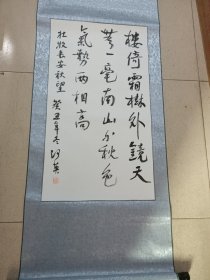 楼倚霜樹外鏡天
無一毫南山與秋色
氣勢兩相高
杜牧长安秋望
癸丑年冬